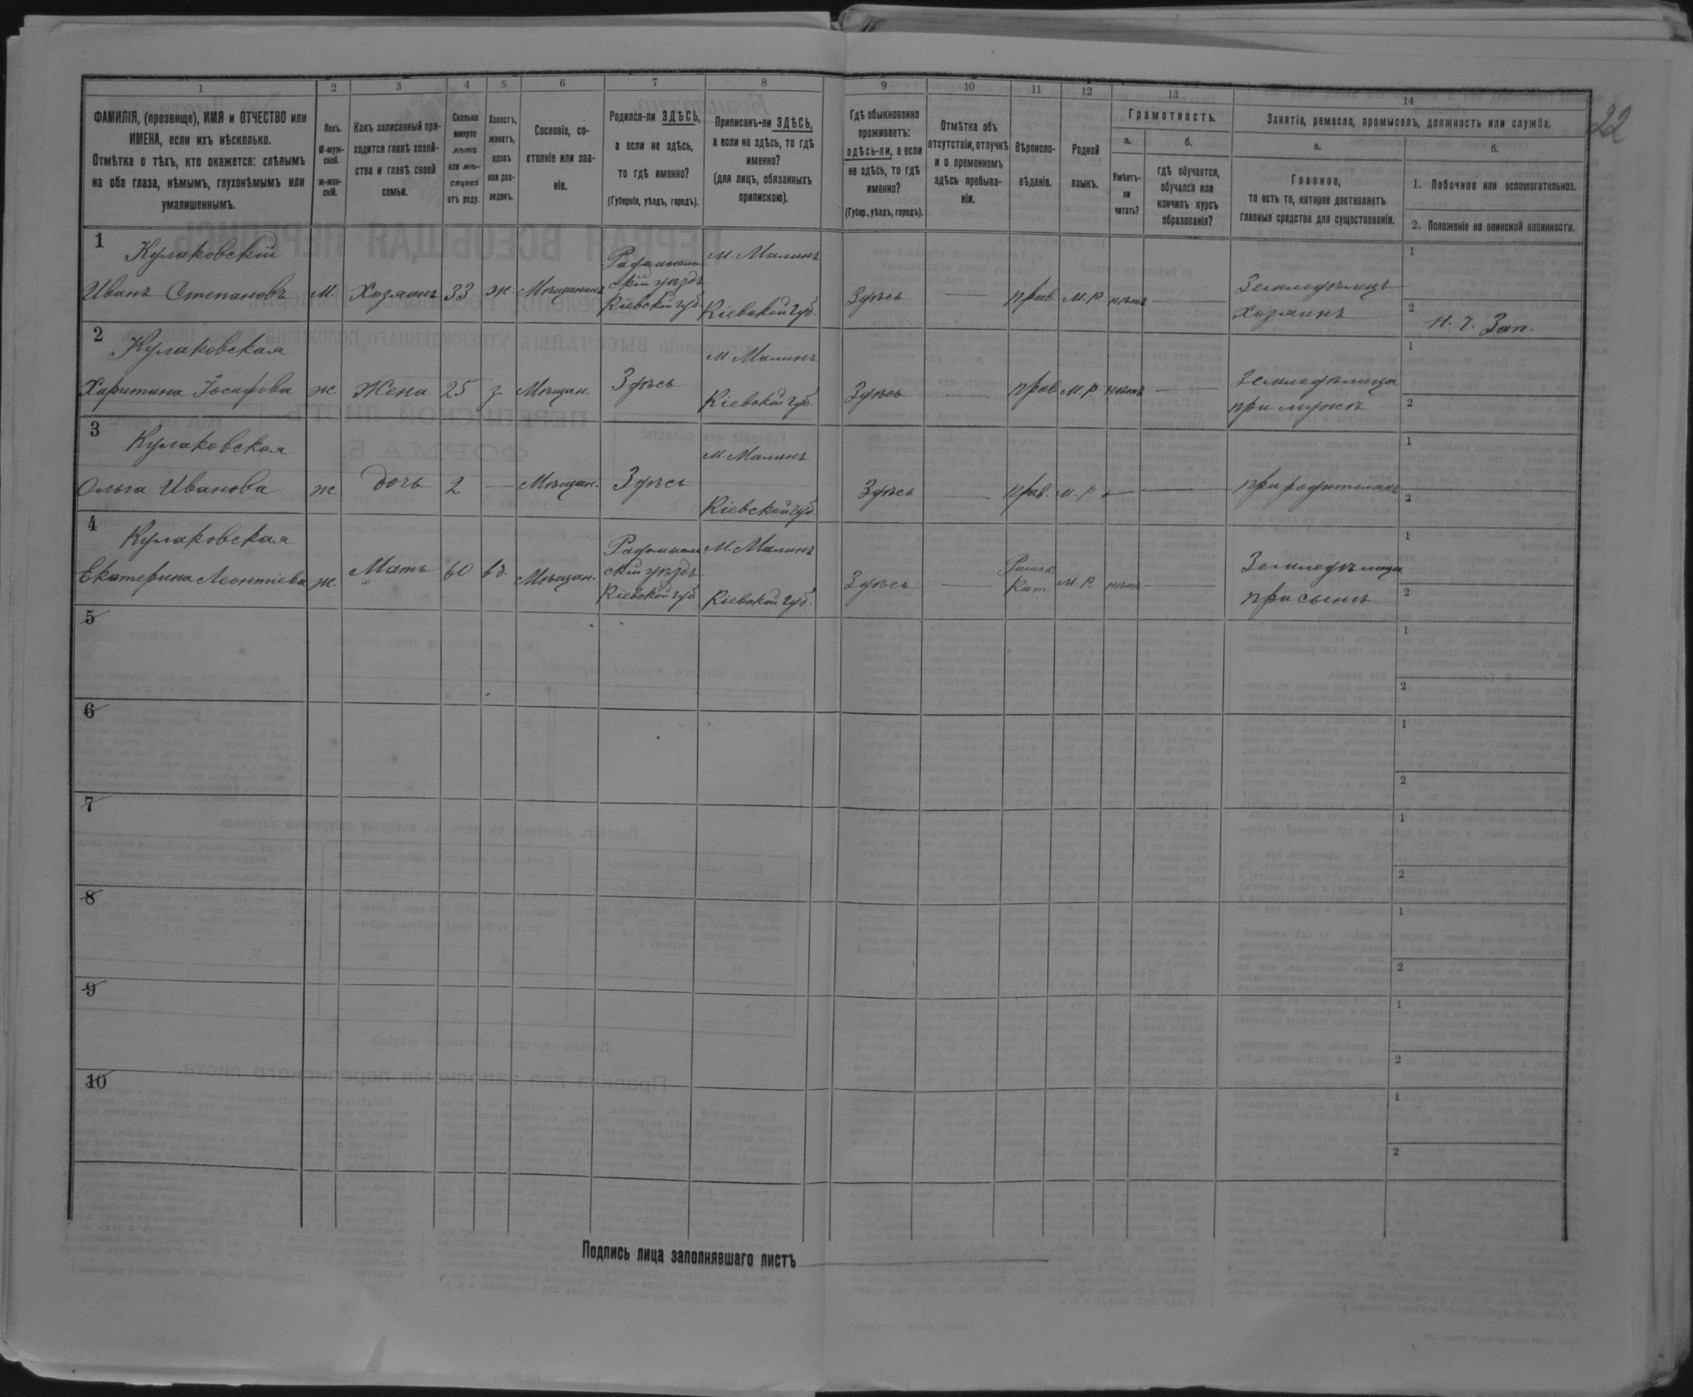 22
1
2
3
4
5
6
7
8
9
10
11
12
13
14
ФАМИЛІЯ, (прозвище), ИМЯ и ОТЧЕСТВО или
ИМЕНА, если ихъ нѣсколько.
Отмѣтка о тѣхъ, кто окажется: слѣпымъ
на оба глаза, нѣмымъ, глухонѣмымъ или
умалишеннымъ.
Полъ.
М-муж-
ской.
ж-жен-
скій.
Какъ записанный при-
ходится главѣ хозяй-
ства и главѣ своей
семьи.
Сколько
минуло
лѣтъ
или мѣ-
сяцевъ
отъ роду.
Холостъ,
женатъ,
вдовъ
или раз-
веденъ.
Сословіе, со-
стояніе или зва-
ніе.
Родился-ли ЗДѢСЬ,
а если не здѣсь,
то гдѣ именно?
(Губернія, уѣздъ, городъ).
Приписанъ-ли ЗДѢСЬ,
а если не здѣсь, то гдѣ
именно?
(для лицъ, обязанныхъ
припискою).
Гдѣ обыкновенно
проживаетъ:
здѣсь-ли, а если
не здѣсь, то гдѣ
именно?
(Губер., уѣздъ, городъ).
Отмѣтка объ
отсутствіи, отлучкѣ
и о временномъ
здѣсь пребыва-
ніи.
Вѣроиспо-
вѣданіе.
Родной
языкъ.
Грамотность.
а.
Умѣетъ-
ли
читать?
б.
гдѣ обучается,
обучался или
кончилъ курсъ
образованія?
Занятіе, ремесло, промыселъ, должность или служба.
а.
Главное,
то есть то, которое доставляетъ
главныя средства для существованія.
б.
1. Побочное или вспомогательное.
2. Положеніе по воинской повинности.
1
Кулаковскій
Иванъ Степановъ м. Хозяинъ 33 ж. Мѣщанинъ
Радомысль
скій уѣздъ
Кіевской губ.
м. Малинъ
Кіевской губ.
Здѣсь — прав м.р. нѣтъ —
Земледѣлецъ
Хозяинъ
1
2
2
Кулаковская
Харитина Іосифова ж Жена 25 з. Мѣщан. Здѣсь
м. Малинъ
Кіевской губ.
Здѣсь — прав м.р. нѣтъ —
Земледѣлица
при мужѣ
1
2
3
Кулаковская
Ольга Иванова ж дочь 2 — Мѣщан. Здѣсь
м. Малинъ
Кіевской губ
Здѣсь — прав. м.р. — —
при родителяхъ
1
2
4
Кулаковская
Екатерина Леонтіева ж. Мать 60 вд. Мѣщан.
Радомысль
скій уѣздъ
Кіевской губ
м. Малинъ
Кіевской губ.
Здѣсь —
Римск
Кат
м.р. нѣтъ —
Земледѣлица
при сынѣ
1
2
5
1
2
6
1
2
7
1
2
8
1
2
9
1
2
10
1
2
Подпись лица заполнявшаго листъ